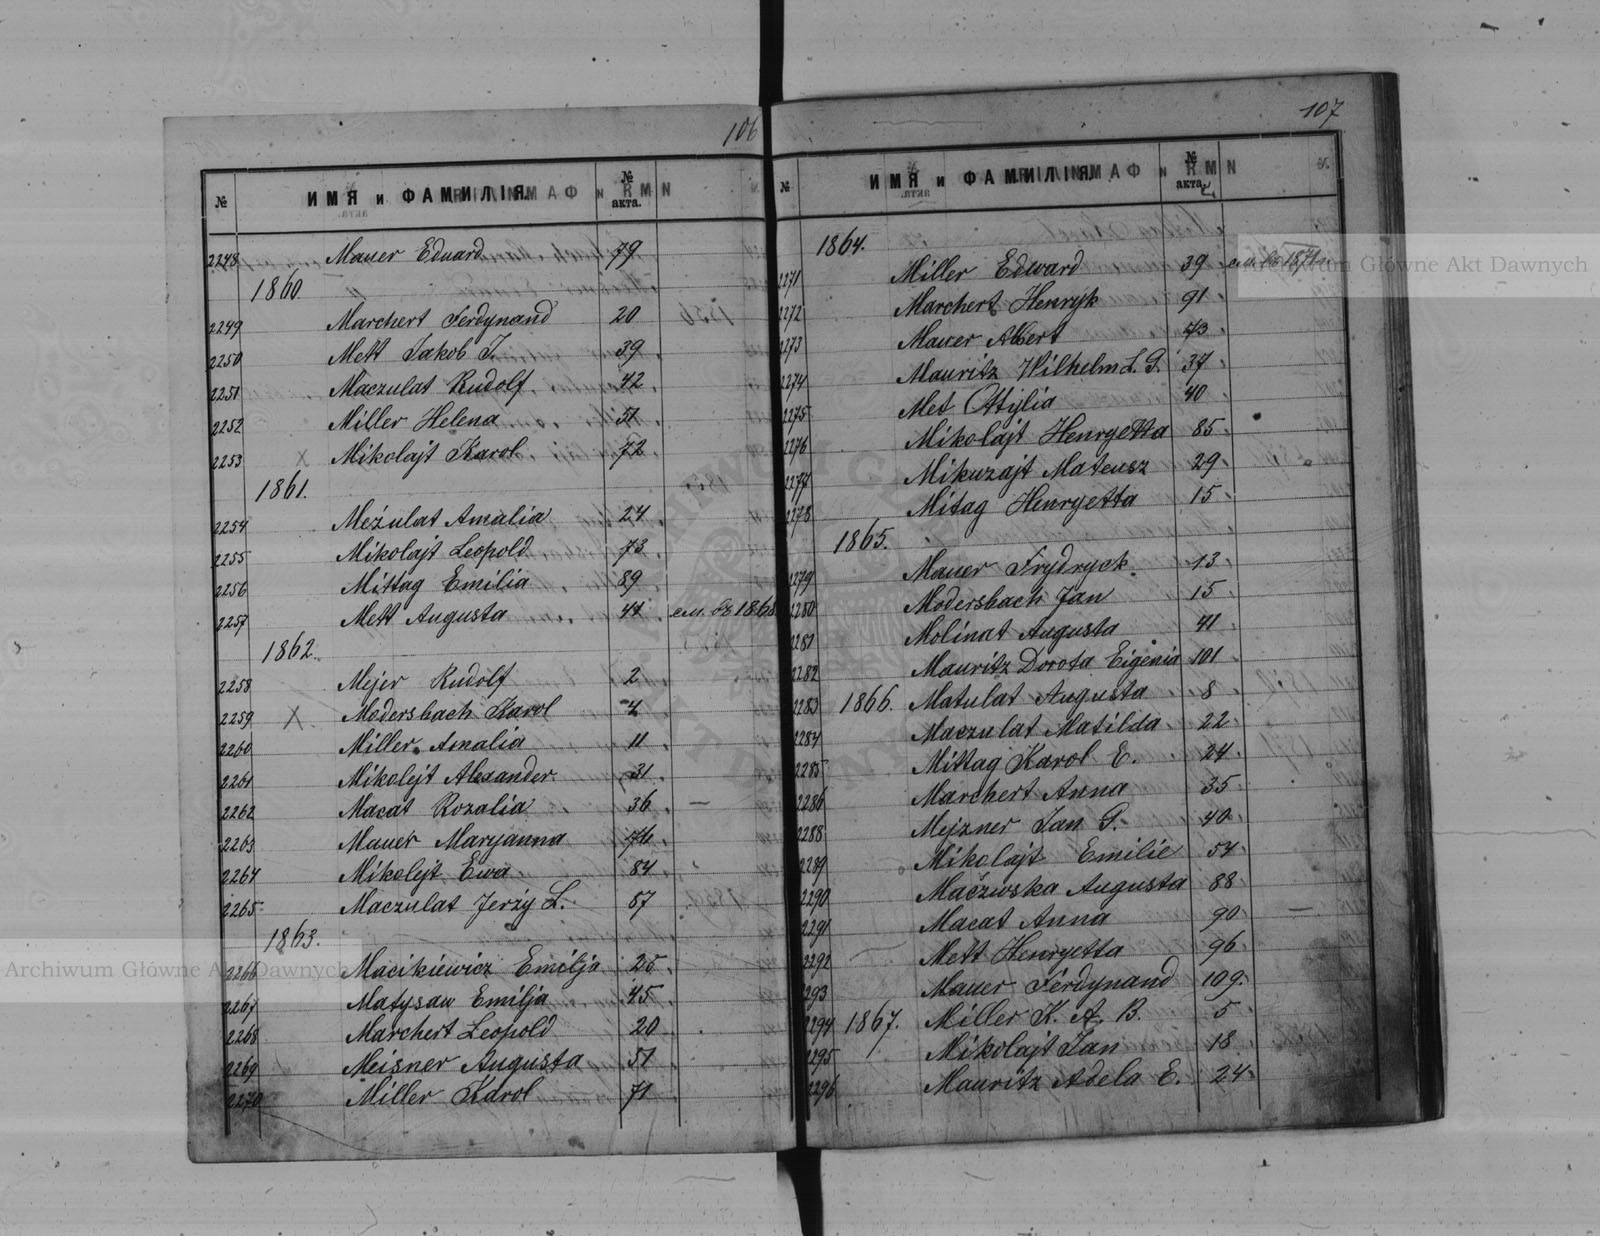 106
№ ИМЯ и ФАМИЛІЯ № акта.
2248 Mauer Eduard 79
1860
2249 Marchert Ferdynand 20
2250 Mett Jakob J. 39
2251 Maczulat Rudolf 42
2252 Miller Helena 51
2253 X Mikolajt Karol 72
1861.
2254 Meżulat Amalia 24
2255 Mikolajt Leopold 73
2256 Mittag Emilia 89
2257 Mett Augusta 44 см. въ 1868
1862.
2258 Mejer Rudolf 2
2259 X Modersbach Karol 4
2260 Miller Amalia 11
2261 Mikolejt Alexander 31
2262 Macat Rozalia 36 —
2263 Mauer Maryanna 76
2264 Mikolejt Ewa 84
2265 Maczulat Jerzy L. 57
1863.
2266 Macikiewicz Emilja 25
2267 Matysaw Emilja 45
2268 Marchert Leopold 20
2269 Meisner Augusta 51
2270 Miller Karol 71
107
№ ИМЯ и ФАМИЛІЯ № акта
1864.
2271 Miller Edward 39 см. въ 1871
2272 Marchert Henryk 91
2273 Mauer Albert 43
2274 Mauritz Wilhelm L. G. 37
2275 Met Ottylia 40
2276 Mikolajt Henryetta 85
2277 Mikuzajt Mateusz 29
2278 Mitag Henryetta 15
1865.
2279 Mauer Frydryck 13
2280 Modersbach Jan 15
2281 Molinat Augusta 41
2282 Mauritz Dorota Eigenia 101
2283 1866. Matulat Augusta 8
2284 Maczulat Matilda 22
2285 Mittag Karol E. 24
2286 Marchert Anna 35
2288 Mejzner Jan G. 40
2289 Mikolajt Emilie 54
2290 Maczwska Augusta 88
2291 Macat Anna 90 —
2292 Mett Henryetta 96
2293 Mauer Ferdynand 109
2294 1867. Miller K. A. B. 5
2295 Mikolajt Jan 18
2296 Mauritz Adela E. 24
Archiwum Główne Akt Dawnych
Archiwum Główne Akt Dawnych